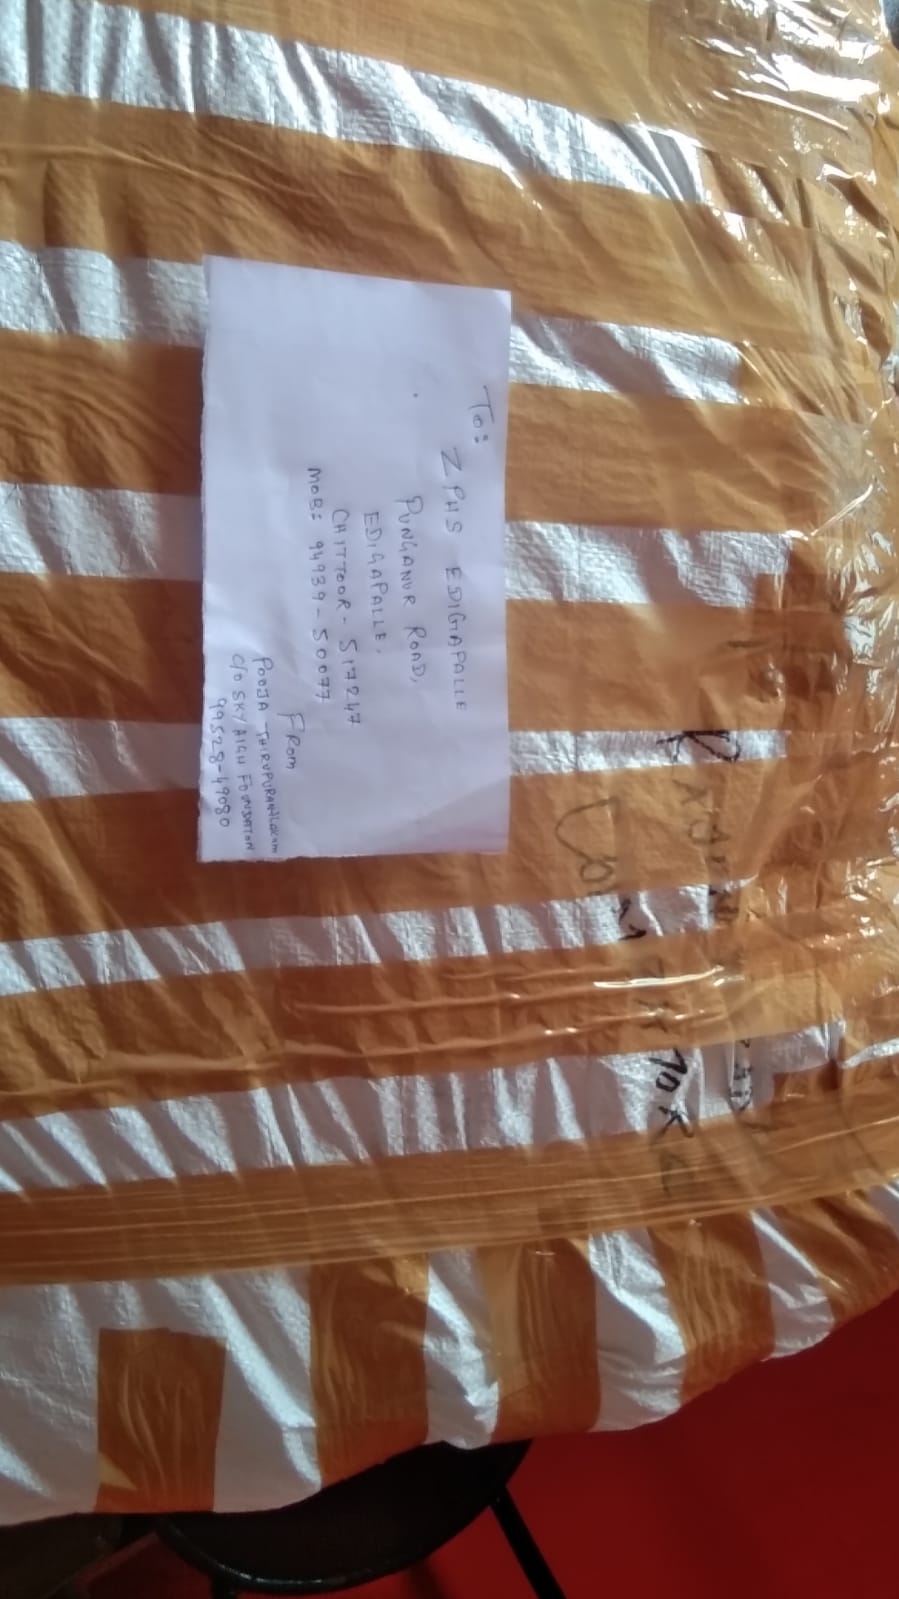 To:
ZPHS EDIGAPALLE
PUNGANUR ROAD,
EDIGAPALLE,
CHITTOOR - 517247
MOB: 94939-50077
FROM
POOJA THIRUPURANILAKAM
C/O SKY HIGH FOUNDATION
99528-49080